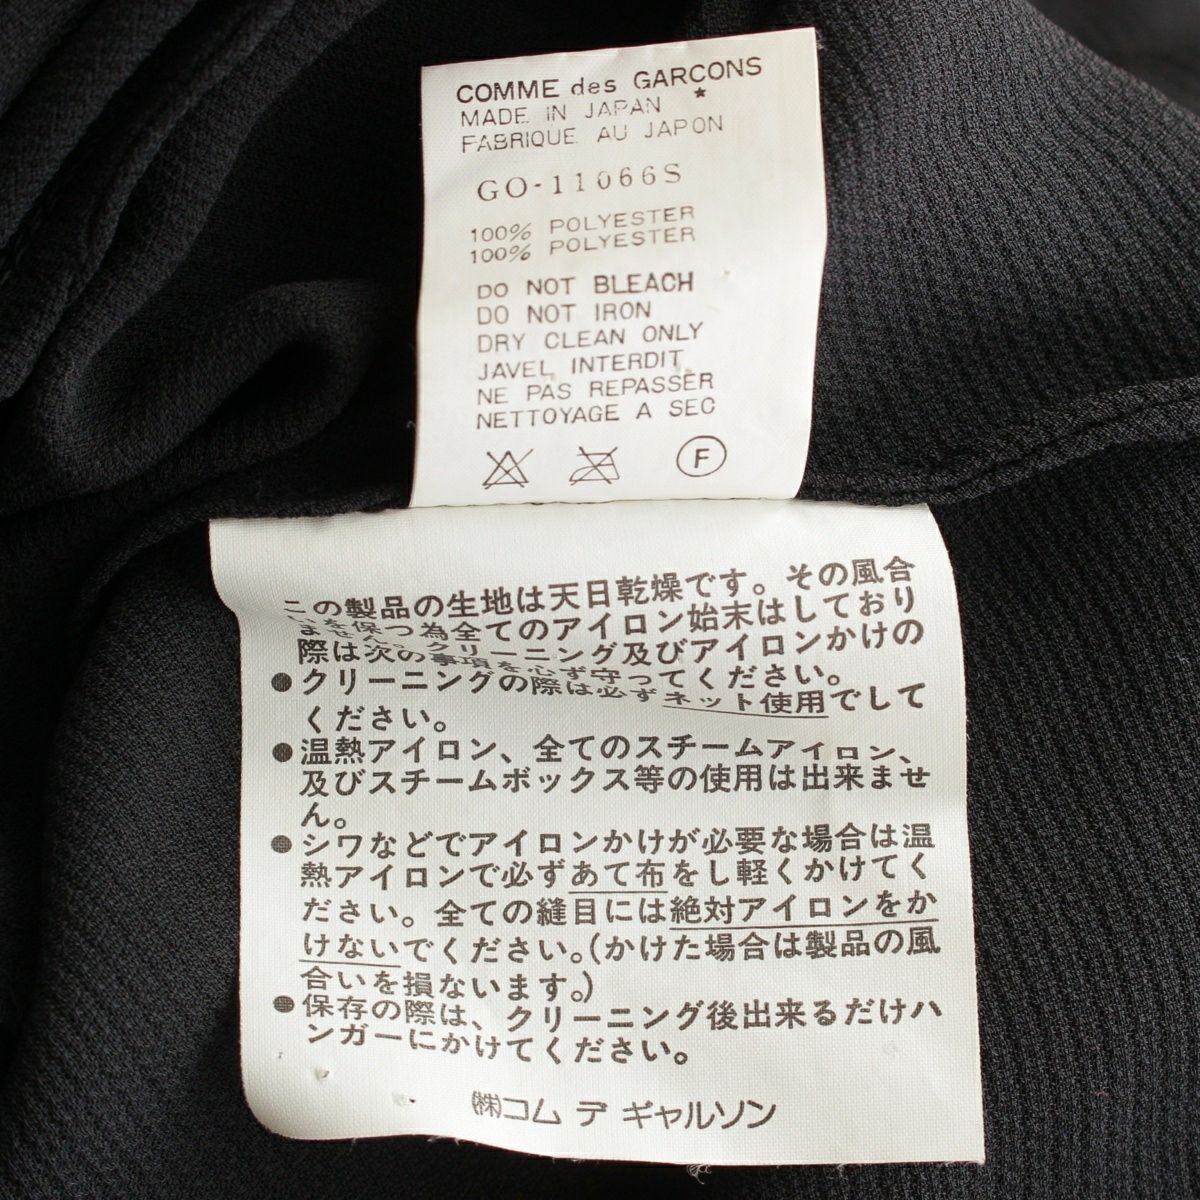 COMME des GARCONS
★
MADE IN JAPAN
FABRIQUE AU JAPON
GO-11066S
100% POLYESTER
100% POLYESTER
DO NOT BLEACH
DO NOT IRON
DRY CLEAN ONLY
JAVEL INTERDIT
NE PAS REPASSER
NETTOYAGE A SEC
F
この製品の生地は天日乾燥です。その風合
いを保つ為全てのアイロン始末はしており
ません。クリーニング及びアイロンかけの
際は次の事項を必ず守ってください。
●クリーニングの際は必ずネット使用でして
ください。
●温熱アイロン、全てのスチームアイロン、
及びスチームボックス等の使用は出来ませ
ん。
●シワなどでアイロンかけが必要な場合は温
熱アイロンで必ずあて布をし軽くかけてく
ださい。全ての縫目には絶対アイロンをか
けないでください。(かけた場合は製品の風
合いを損ないます。)
●保存の際は、クリーニング後出来るだけハ
ンガーにかけてください。
㈱コム デ ギャルソン